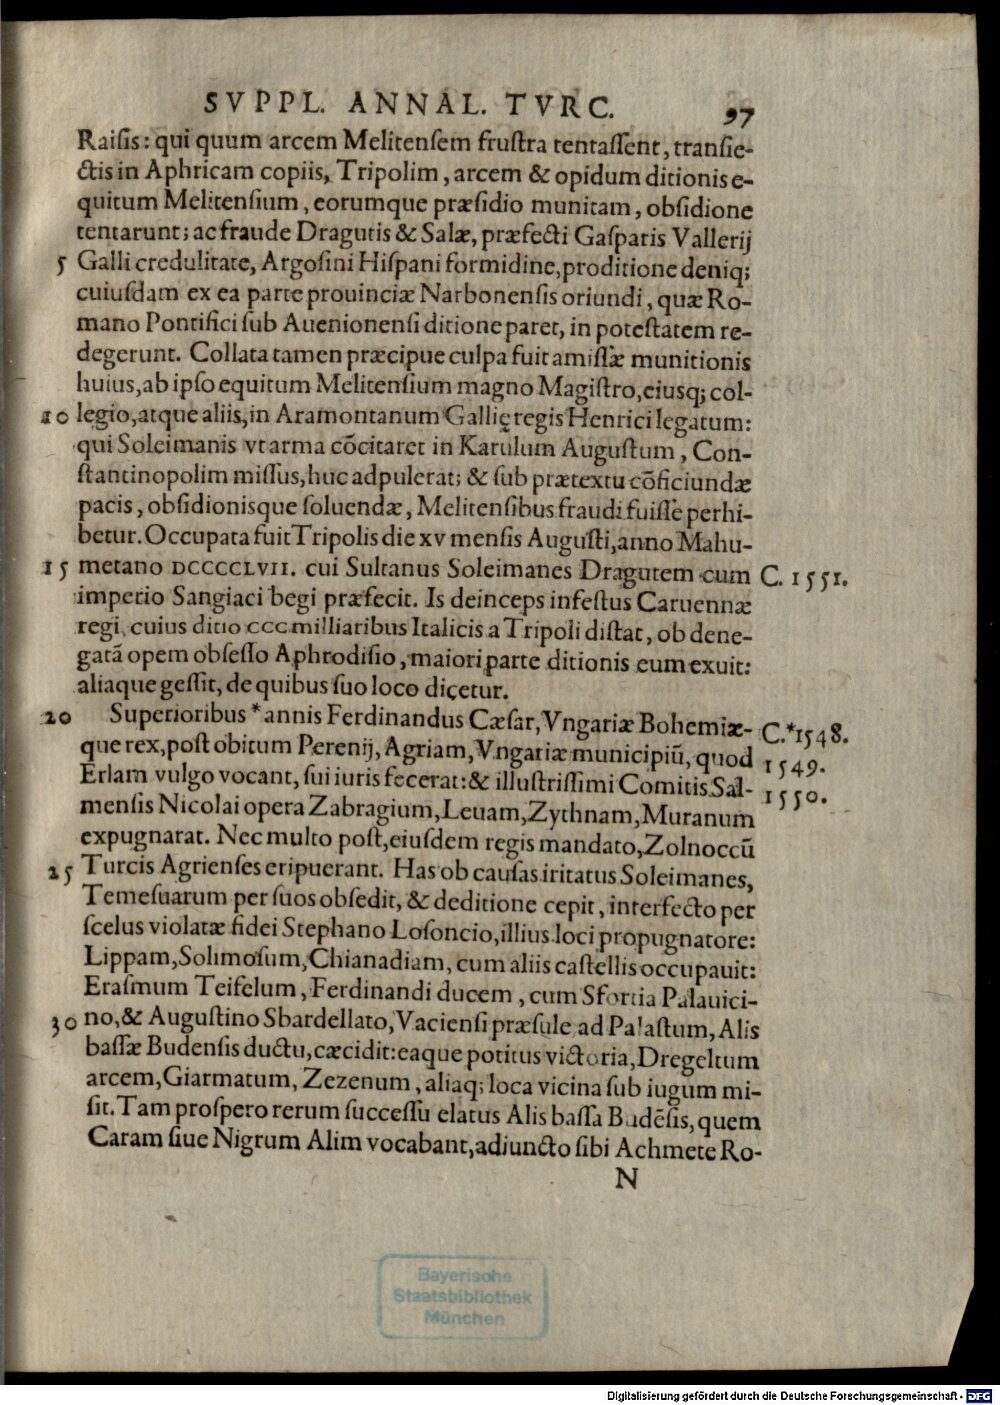 SVPPL. ANNAL. TVRC. 97
Raiſis: qui quum arcem Melitenſem fruſtra tentaſſent, tranſie-
ctis in Aphricam copiis, Tripolim, arcem & opidum ditionis e-
quitum Melitenſium, eorumque præſidio munitam, obſidione
tentarunt; ac fraude Dragutis & Salæ, præfecti Gaſparis Vallerij
5 Galli credulitate, Argoſini Hiſpani formidine, proditione deniq;
cuiuſdam ex ea parte prouinciæ Narbonenſis oriundi, quæ Ro-
mano Pontifici ſub Auenionenſi ditione paret, in poteſtatem re-
degerunt. Collata tamen præcipue culpa fuit amiſſæ munitionis
huius, ab ipſo equitum Melitenſium magno Magiſtro, eiusq; col-
10 legio, atque aliis, in Aramontanum Gallię regis Henrici legatum:
qui Soleimanis vt arma cõcitaret in Karulum Auguſtum, Con-
ſtantinopolim miſſus, huc adpulerat; & ſub prætextu cõficiundæ
pacis, obſidionisque ſoluendæ, Melitenſibus fraudi fuiſſe perhi-
betur. Occupata fuit Tripolis die xv menſis Auguſti, anno Mahu-
15 metano DCCCCLVII. cui Sultanus Soleimanes Dragutem cum C. 1551.
imperio Sangiaci begi præfecit. Is deinceps infeſtus Caruennæ
regi, cuius ditio CCC milliaribus Italicis a Tripoli diſtat, ob dene-
gatã opem obſeſſo Aphrodiſio, maiori parte ditionis eum exuit:
aliaque geſſit, de quibus ſuo loco dicetur.
20 Superioribus * annis Ferdinandus Cæſar, Vngariæ Bohemiæ- C.*1548.
que rex, poſt obitum Perenij, Agriam, Vngariæ municipiũ, quod 1549.
Erlam vulgo vocant, ſui iuris fecerat: & illuſtriſſimi Comitis Sal- 1550.
menſis Nicolai opera Zabragium, Leuam, Zythnam, Muranum
expugnarat. Nec multo poſt, eiuſdem regis mandato, Zolnoccũ
25 Turcis Agrienſes eripuerant. Has ob cauſas iritatus Soleimanes,
Temeſuarum per ſuos obſedit, & deditione cepit, interfecto per
ſcelus violatæ fidei Stephano Loſoncio, illius loci propugnatore:
Lippam, Solimoſum, Chianadiam, cum aliis caſtellis occupauit:
Eraſmum Teifelum, Ferdinandi ducem, cum Sfortia Palauici-
30 no, & Auguſtino Sbardellato, Vacienſi præſule ad Palaſtum, Alis
baſſæ Budenſis ductu, cæcidit: eaque potitus victoria, Dregeltum
arcem, Giarmatum, Zezenum, aliaq; loca vicina ſub iugum mi-
ſit. Tam proſpero rerum ſucceſſu elatus Alis baſſa Budẽſis, quem
Caram ſiue Nigrum Alim vocabant, adiuncto ſibi Achmete Ro-
N
Bayerische
Staatsbibliothek
München
Digitalisierung gefördert durch die Deutsche Forschungsgemeinschaft - DFG